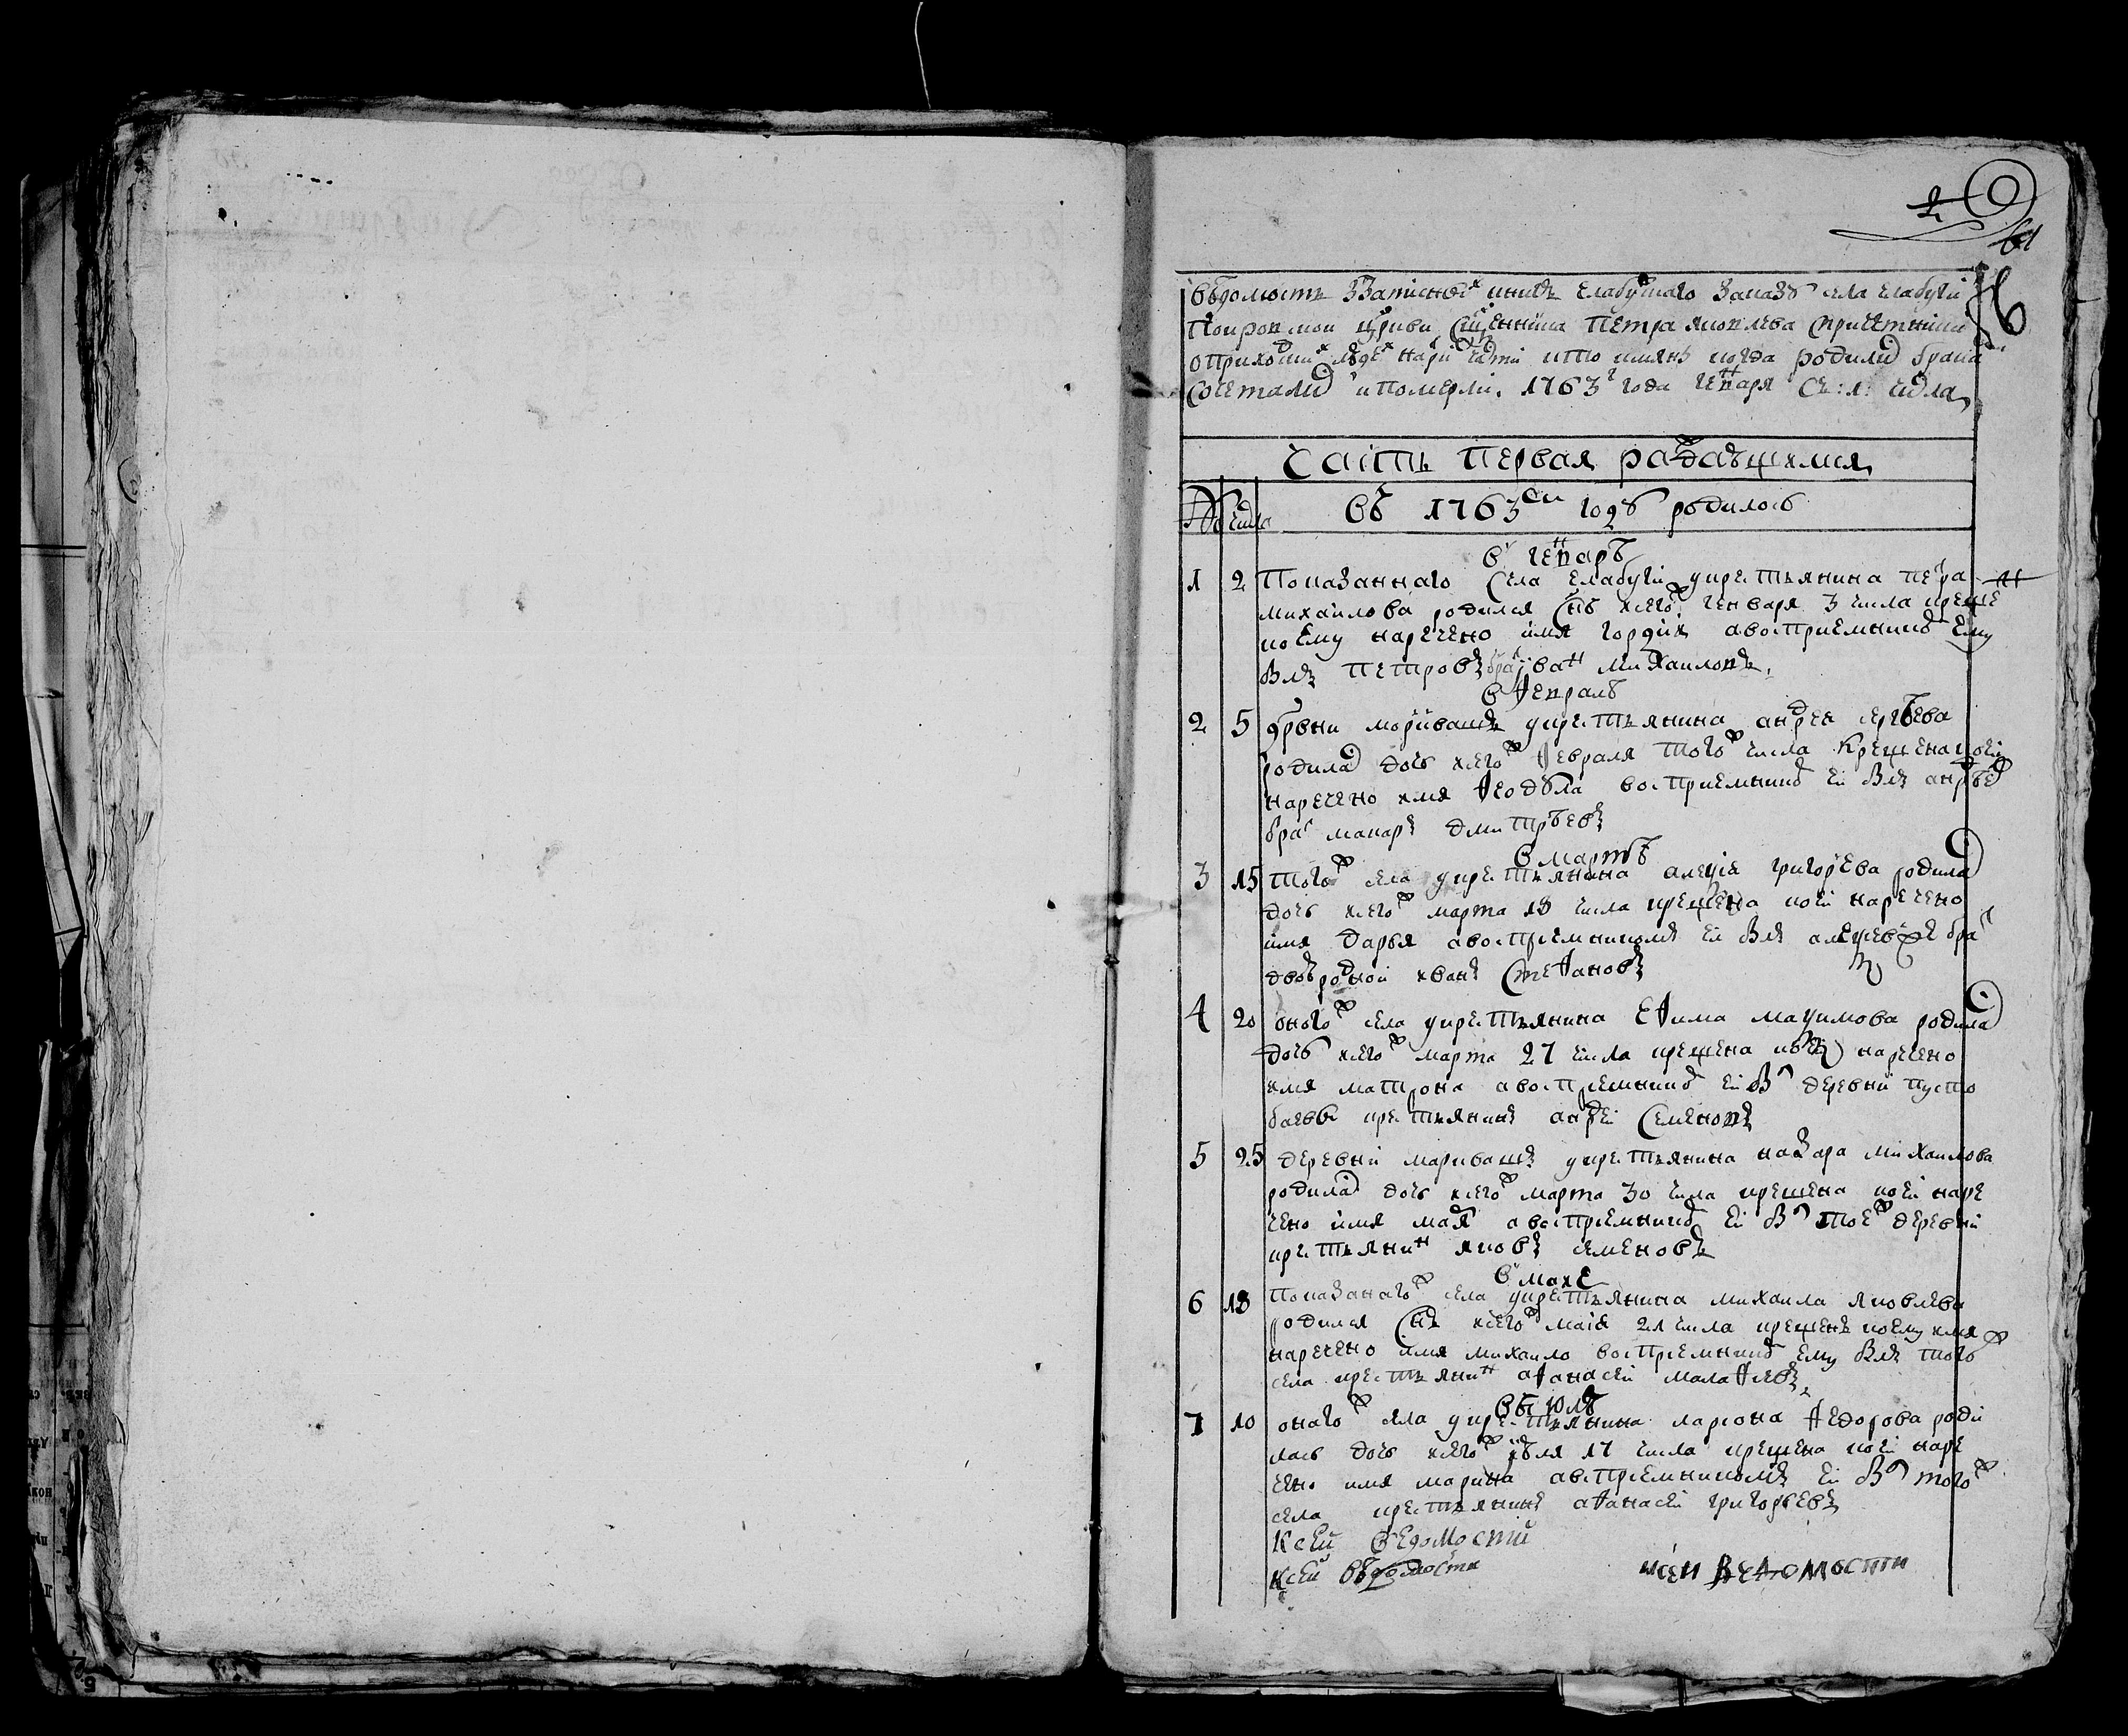 61
вѣдомость Записной книгѣ Елабушскаго Заказу села Елабуги
Покровской церкви священника Петра Яковлева спричетники
оприхоцкихъ людех кто имянъ когда родились брака
сочетались ипомерли. 1763 года генваря с 1 числа
Часть первая раждающимся
№ числа Въ 1763м году родилось
в генварѣ
1 2 Показаннаго села Елабуги укрестьянина петра
михаилова родился снъ ксего генваря 3 числа креще
ноему наречено имя гордий авосприемникъ ему
былъ петровъ братъ иванъ михаиловъ
в февралѣ
2 5 дрвни морквашъ укрестьянина андрея сергѣева
родилась дочь ксего февраля того числа крещена иоей
наречено имя феодула восприемникъ ей былъ андрѣев
братъ макаръ дмитрѣевъ
в мартѣ
3 15 того села укрестьянина алеѯѣя григорьева родилась
дочь ксего марта 18 числа крещена иоей наречено
имя дарья авосприемникомъ ей былъ алеѯѣевъ же братъ
двоюродной иванъ стефановъ
4 20 оного села укрестьянина ефима маѯимова родилась
дочь ксего марта 27 числа крещена иоей наречено
имя матрона авосприемникъ ей былъ деревни пусто
баевы крестьянинъ андрей семеновъ
5 25 деревни марквашъ укрестьянина назара михаилова
родилась дочь ксего марта 30 числа крещена иоей наре
чено имя авосприемникъ ей былъ тоеж деревни
крестьянинъ яковъ семеновъ
в маие
6 18 Показанаго села укрестьянина михаила яковлева
родился снъ ксего маія 21 числа крещенъ иоему имя
наречено имя михаило восприемникъ ему былъ того
села крестьянинъ афанасей малафеевъ
въ июлѣ
7 10 онаго села укрестьянина лариона федорова роди
лась дочь ксего июля 17 числа крещена иоей наре
чено имя марина авосприемникомъ ей былъ того
села крестьянинъ афанасей григорьевъ
Ксей ведомостий
Ксей вѣдомости ксеи ведомости